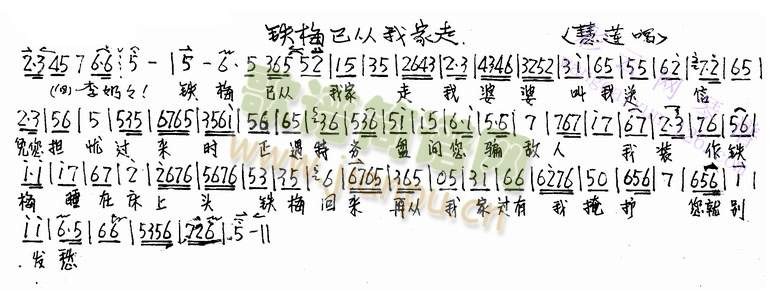 铁梅已从我家走. (慧莲唱)
2·3 45 7 6·6 5 - | 5 - 6· 5 365 52 | 15 | 35 | 2643 | 2·3 | 4346 | 3252 | 3i | 65 | 55 | 62 | 7·2 | 65 |
(白)李奶奶! 铁 梅 已从 我家 走 我 婆 婆 叫我送 信
2·3 | 56 | 5 | 535 | 6765 | 356i | 56 | 65 | 36 | 536 | 5i | i5 | 6·i | 5·5 | 7 | 767 | i7 | 67 | 2·3 | 76 | 56 |
免您担 忧 过 来 时 正 遇特 务 盘问您 骗 敌人 我 装 作铁
i·i | i7 | 67 | 2· | 2676 | 5676 | 53 | 35 | 6 | 6765 | 365 | 05 | 3i | 66 | 6276 | 50 | 656 | 7 | 656 | i |
梅 睡在床上 头 铁梅回来 再从 我 家过有 我 掩 护 您就别
ii | 6·5 | 66 | 5356 | 726 | 5 - ||
发愁
www.jianpu.cn